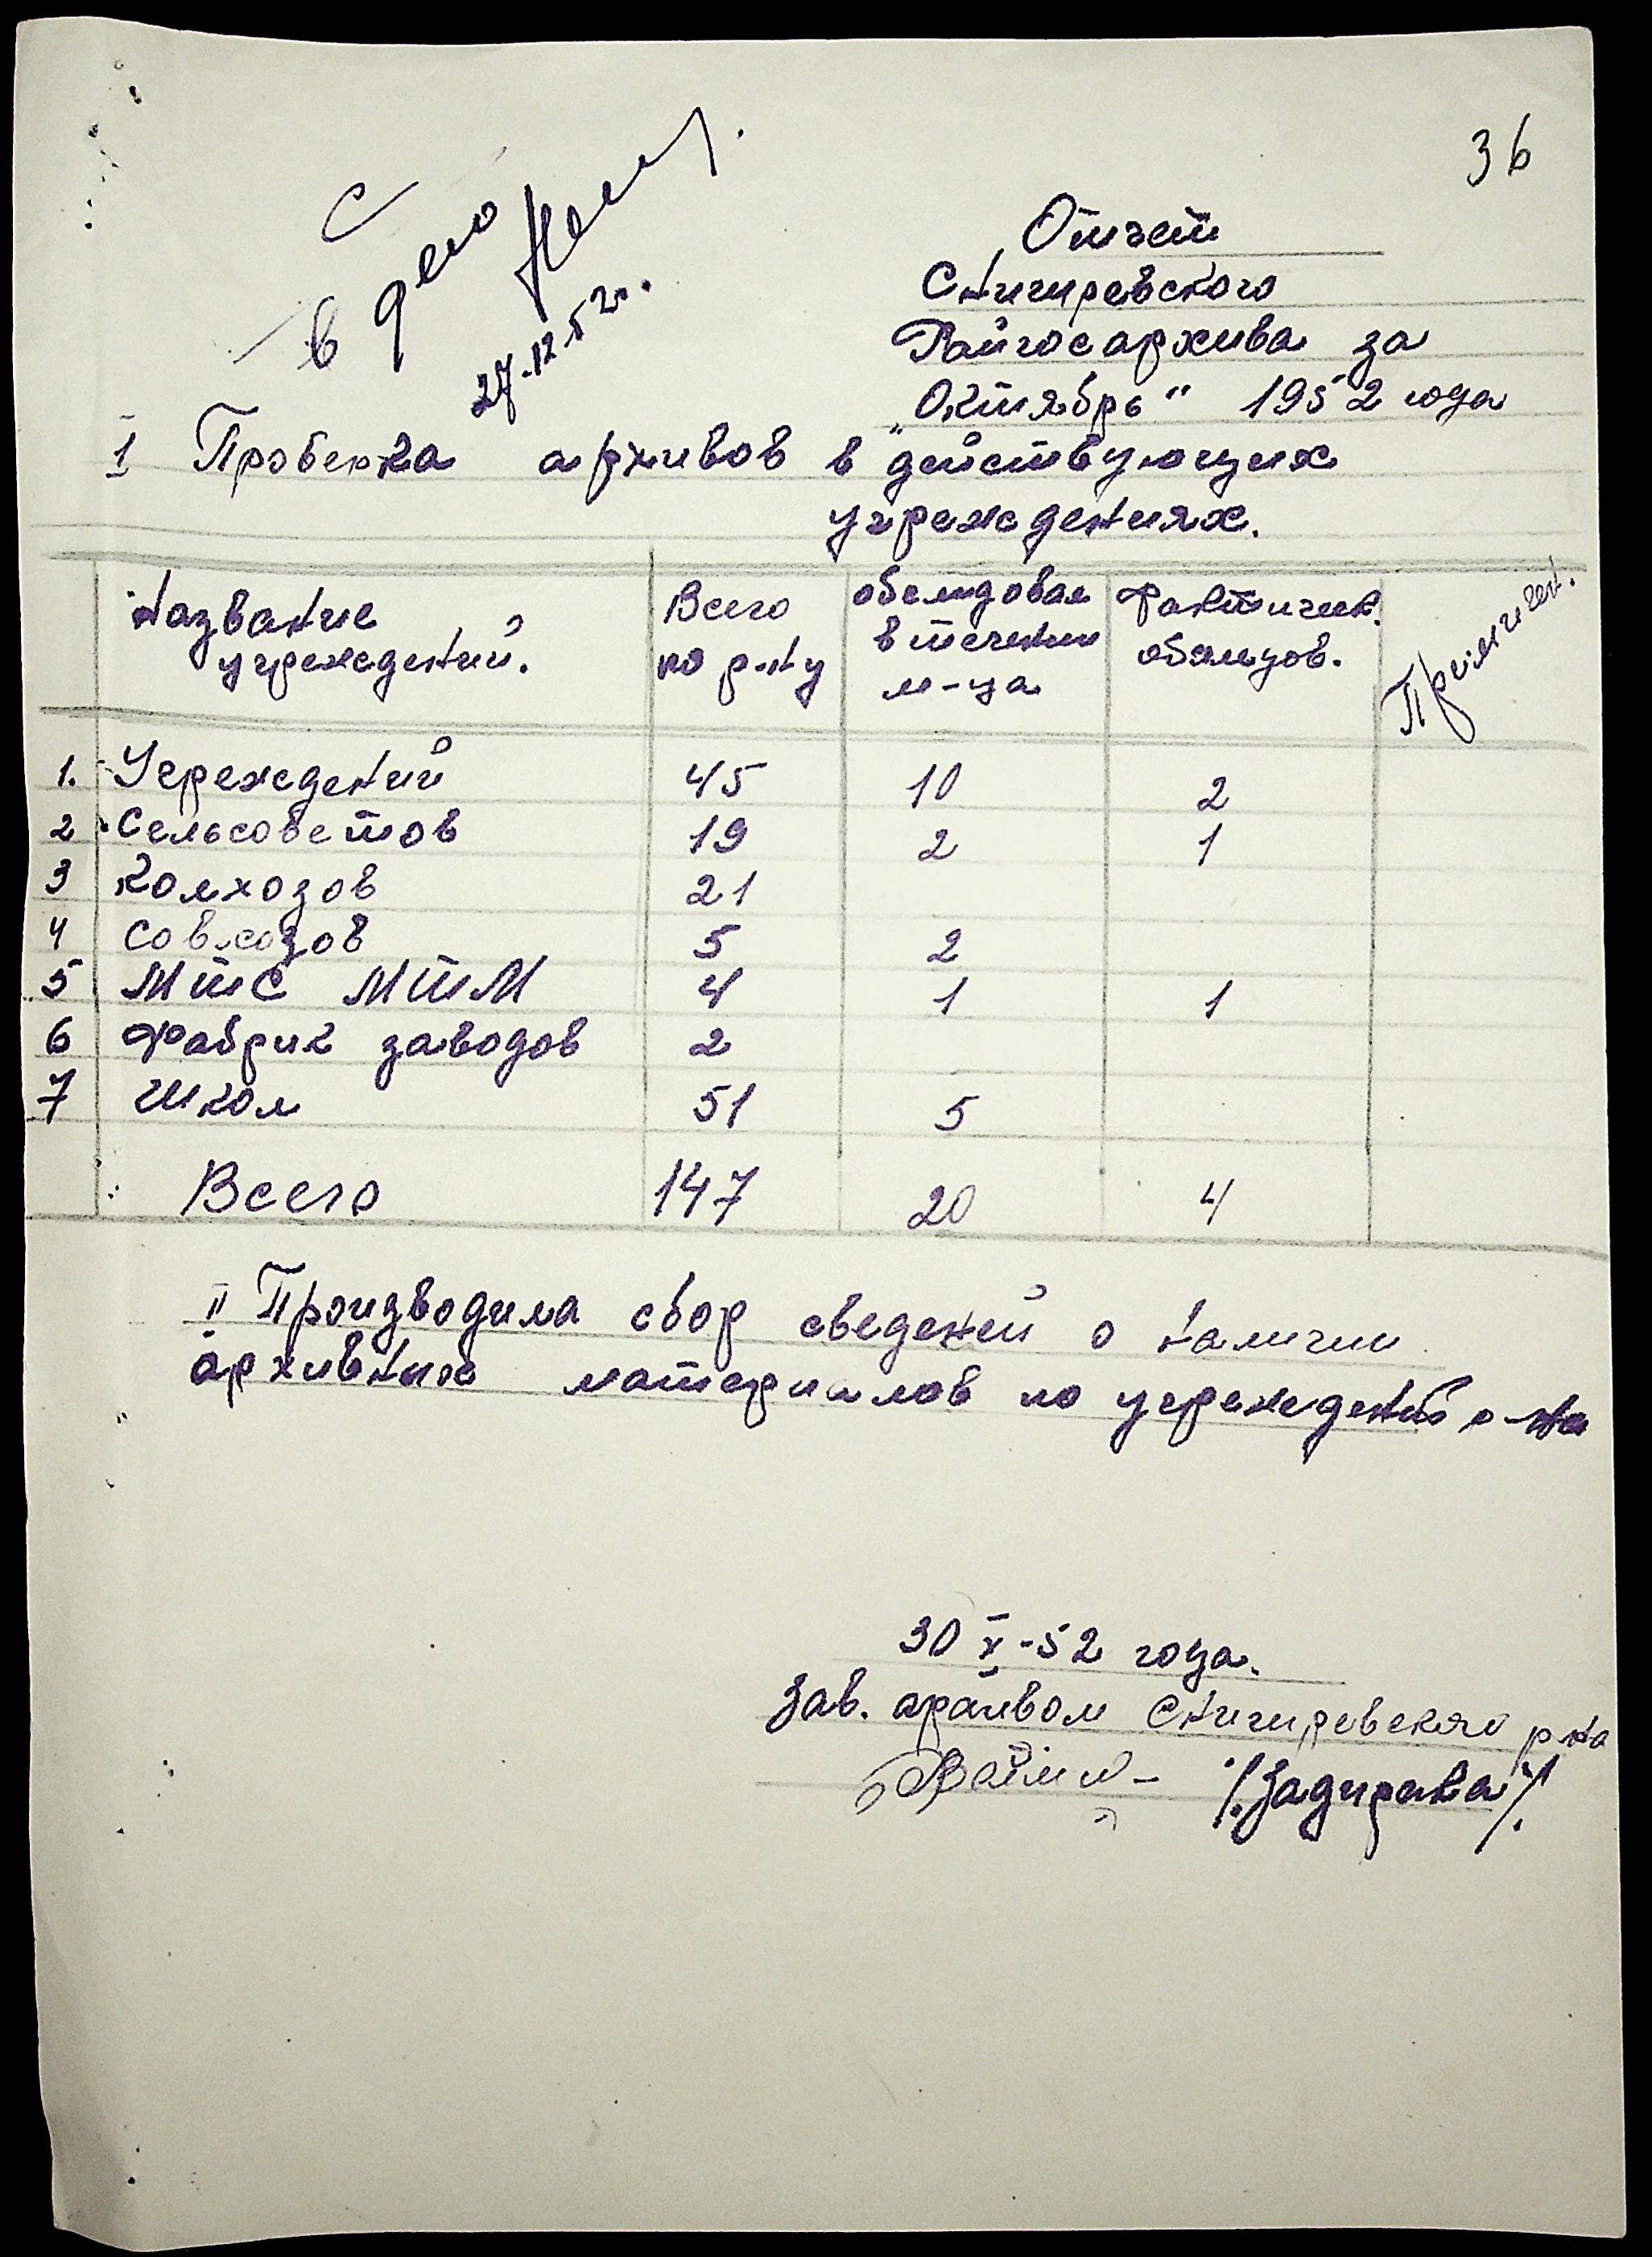 36
С
в дело
27.12.52г.
Отчет
Снигиревского
Райгосархива за
„Октябрь" 1952 года
I Проверка архивов в действующих
учреждениях.
Название учреждений. Всего по р-ну обследован в течении м-ца Фактическ. обследов. Примечен.
1. Учреждений 45 10 2
2 Сельсоветов 19 2 1
3 Колхозов 21
4 Совхозов 5 2
5 МТС МТМ 4 1 1
6 Фабрик заводов 2
7 Школ 51 5
Всего 147 20 4
II Производила сбор сведений о наличии
архивных материалов по учреждений р-на
30 X-52 года.
Зав. архивом Снигиревского р-на
/.Задирака/.